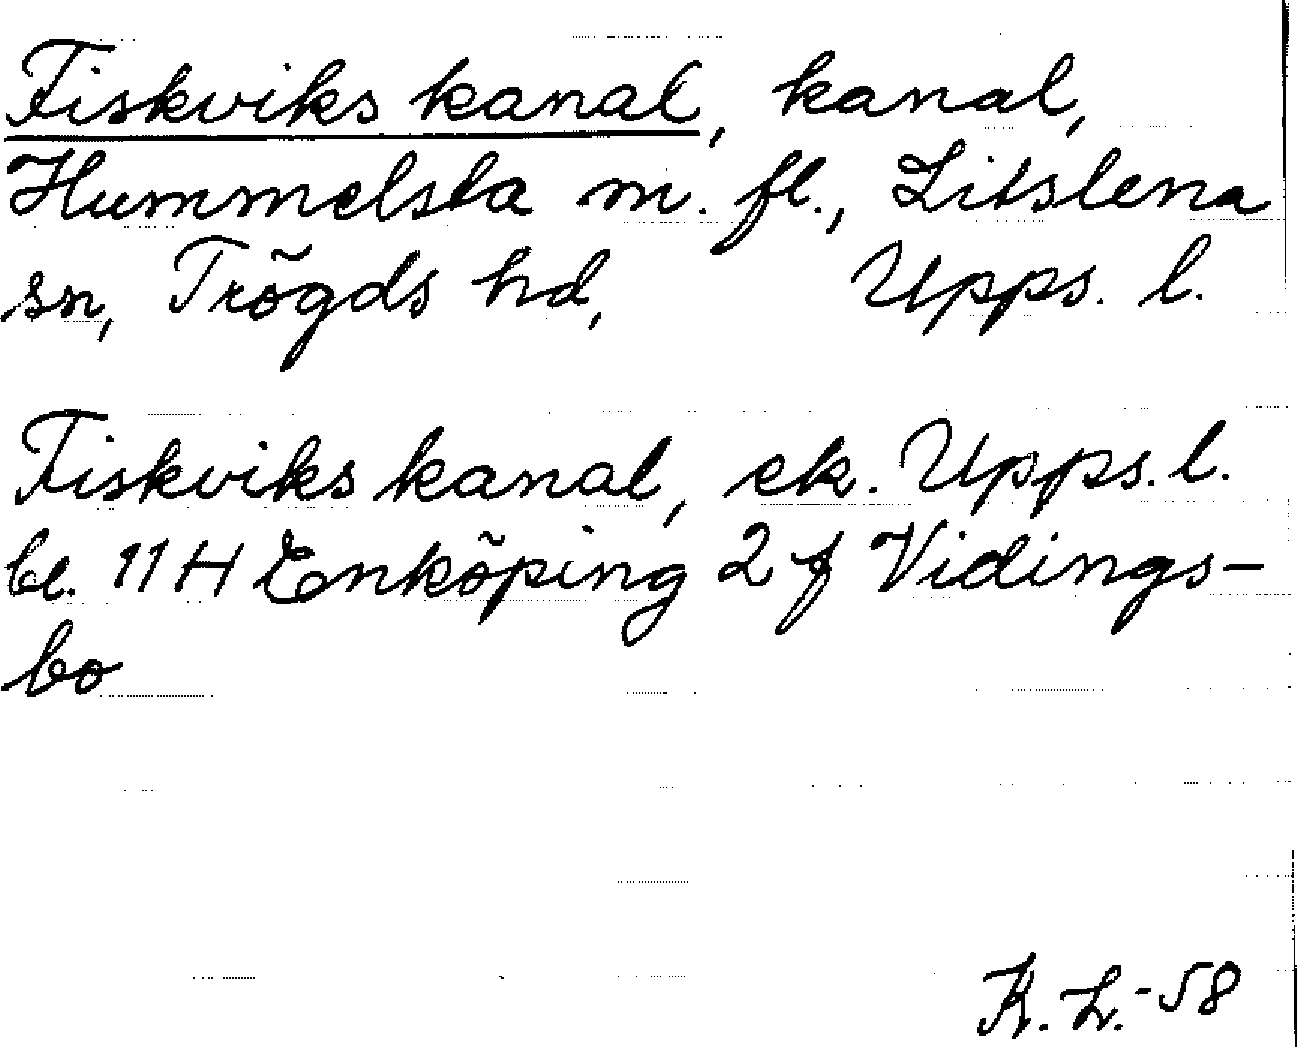 Fiskviks kanal, kanal,
Hummelsta m. fl., Litslena
sn, Trögds hd, Upps. l.
Fiskviks kanal, ek. Upps. l.
bl. 11 H Enköping 2 f Vidings-
bo
K. L. -58